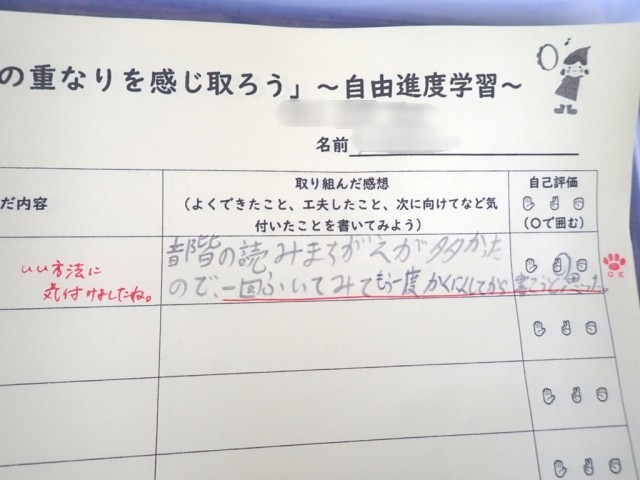 の重なりを感じ取ろう」～自由進度学習～
名前
だ内容
取り組んだ感想
(よくできたこと、工夫したこと、次に向けてなど気
付いたことを書いてみよう)
自己評価
(〇で囲む)
いい方法に
気付けましたね。
音階の読みまちがえが多かった
ので、一回ふいてみてもう一度かくにんしてから書こうと思った。